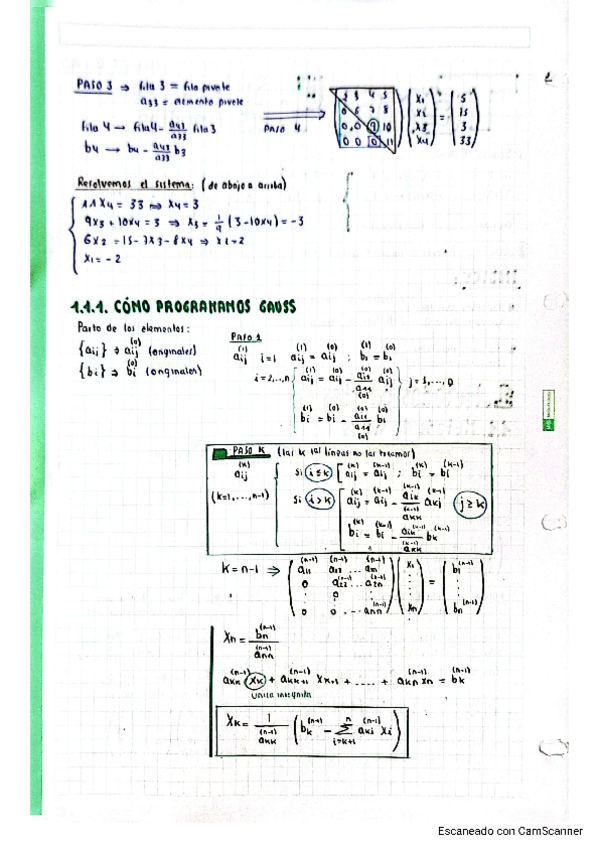 PASO 3 ⇒ fila 3 = fila pivote
a33 = elemento pivote
fila 4 → fila4 - a43/a33 fila 3
b4 → b4 - a43/a33 b3
PASO 4
2 3 4 5
0 6 7 8
0 0 9 10
0 0 0 11
x1 x2 x3 x4 = 5 15 3 33
Resolvemos el sistema: (de abajo a arriba)
11x4 = 33 ⇒ x4 = 3
9x3 + 10x4 = 3 ⇒ x3 = 1/9 (3 - 10x4) = -3
6x2 = 15 - 7x3 - 8x4 ⇒ x2 = 2
x1 = -2
1.1.1. CÓMO PROGRAMAMOS GAUSS
Parto de los elementos:
{aij} ⇒ aij^(0) (originales)
{bi} ⇒ bi^(0) (originales)
PASO 1
aij^(1) i=1 aij^(1) = aij^(0) ; bi^(1) = bi^(0)
i=2,...,n aij^(1) = aij^(0) - ai1^(0)/a11^(0) a1j^(0)
bi^(1) = bi^(0) - ai1^(0)/a11^(0) b1^(0)
j = 1, ..., n
PASO K (las k líneas no las tocamos)
aij^(k) Si i≤k aij^(k) = aij^(k-1) ; bi^(k) = bi^(k-1)
(k=1,...,n-1) Si i>k aij^(k) = aij^(k-1) - aik^(k-1)/akk^(k-1) akj^(k-1) j≥k
bi^(k) = bi^(k-1) - aik^(k-1)/akk^(k-1) bk^(k-1)
K = n-1 ⇒
a11^(n-1) a12^(n-1) ... a1n^(n-1)
0 a22^(n-1) ... a2n^(n-1)
: 0 :
0 0 ... ann^(n-1)
x1 : xn = b1^(n-1) : bn^(n-1)
Xn = bn^(n-1)/ann^(n-1)
akk^(n-1) Xk + akk+1^(n-1) Xk+1 + ..... + akn^(n-1) Xn = bk^(n-1)
única incógnita
Xk = 1/akk^(n-1) (bk^(n-1) - Σ i=k+1 n aki^(n-1) Xi)
Escaneado con CamScanner